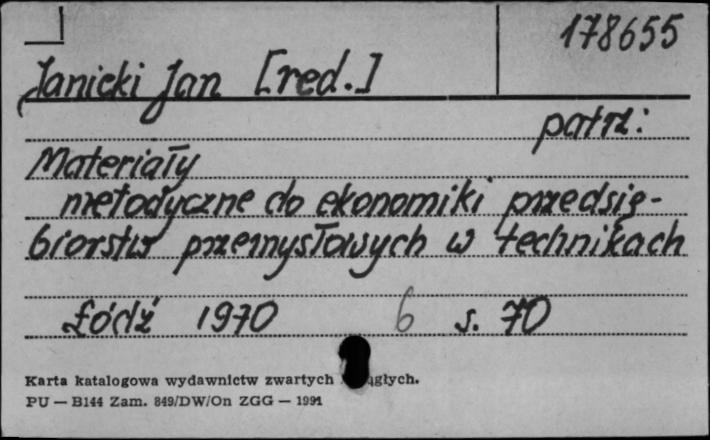 178655
Janicki Jan [red.]
patrz:
Materiały
metodyczne do ekonomiki przedsię-
biorstw przemysłowych w technikach
Łódź 1970 6 s. 70
Karta katalogowa wydawnictw zwartych
PU — B144 Zam. 849/DW/On ZGG — 1991